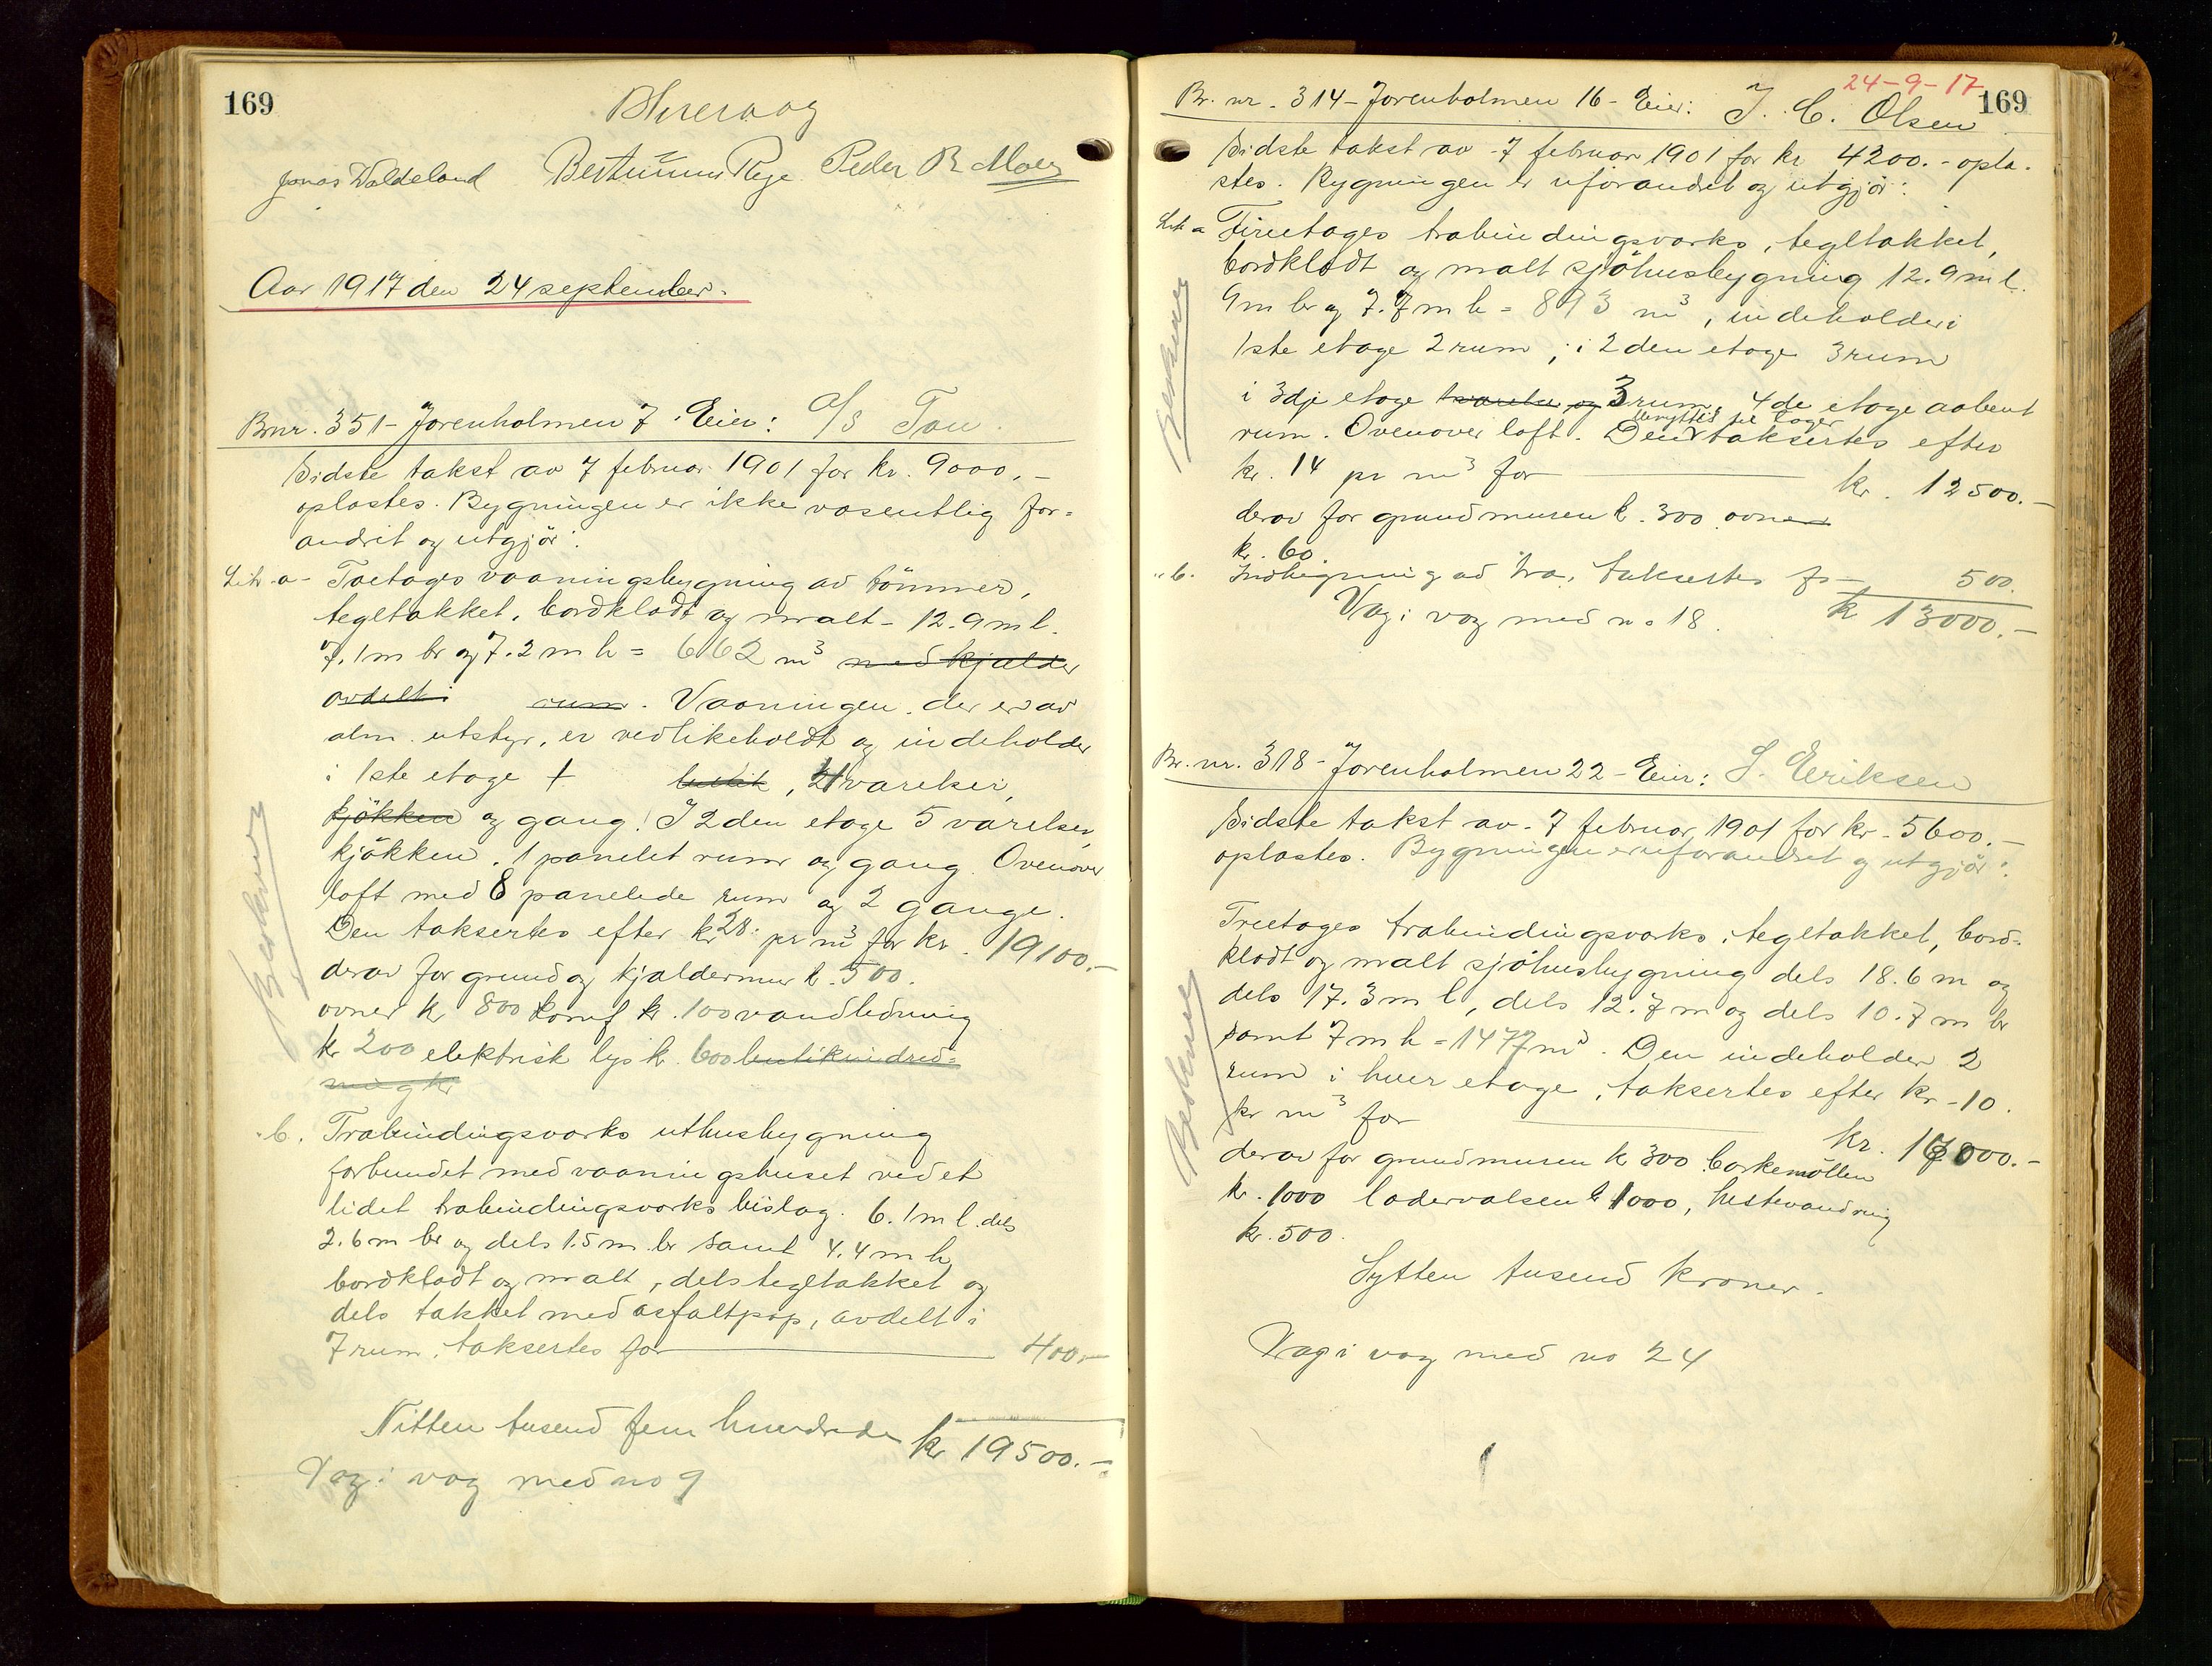 169
Jonas Waldeland Rege Peder B Moen
Aar 1917 den 24 september.
Brnr. 351 - Jorenholmen 7 - Eier: A/S Tou.
Sidste takst av 7 februar 1901 for kr. 9000.-
oplæstes. Bygningen er ikke væsentlig for=
andret og utgjör:
Litr. a - Toetages vaaningsbygning av tömmer,
tegltækket, bordklædt og malt - 12.9 m l.
7.1 m br og 7.2 m h = 662 m³ med kjælder
avdelt i rum. Vaaningen, der er av
alm. utstyr, er vedlikeholdt og indeholder
i 1ste etage butik, 4 værelser,
kjökken og gang. I 2den etage 5 værelser,
kjökken, 1 panelet rum og gang. Ovenover
loft med 8 panelede rum og 2 gange.
Den takseres efter kr 28. pr m³ for kr. 19100.-
derav for grund og kjældermur k. 500.
ovner kr 800 komf kr. 100 vandledning
kr 200 elektrisk lys k. 600 butikindred=
ning kr
" b. Træbindingsværks uthusbygning
forbundet med vaaningshuset ved et
lidet træbindingsværks bislag. 6.1 m l. dels
2.6 m br og dels 1.5 m br samt 4.4 m h
bordklædt og malt, dels tegltækket og
dels tækket med asfaltpap, avdelt i
7 rum, takseres for 400.-
Nitten tusend fem hundrede kr 19500.-
Væg i væg med no 9
Beskrives
24-9-17
169
Br. nr. 314 - Jorenholmen 16 - Eier: J. C. Olsen
Sidste takst av 7 februar 1901 for kr 4200.- oplæ-
stes. Bygningen er uforandret og utgjör:
Litr a Fireetages træbindingsværks, tegltækket,
bordklædt og malt sjöhusbygning 12.9 m l.
9 m br og 7.7 m h = 893 m³, indeholder i
1ste etage 2 rum, i 2den etage 3 rum
i 3dje etage værelse og 3 rum, 4de etage aabent
rum. Ovenover loft. Den benyttes til lager takseres efter
kr. 14 pr m³ for kr. 12500.-
derav for grundmuren k. 300 ovner
kr. 60.
" b. Indhegning av træ, takseres for 500.
Væg i væg med no 18. kr 13000.-
Br. nr. 318 - Jorenholmen 22 - Eier: S. Eriksen
Sidste takst av 7 februar 1901 for kr. 5600.-
oplæstes. Bygningen er uforandret og utgjör:
Treetages træbindingsværks, tegltækket, bord-
klædt og malt sjöhusbygning dels 18.6 m og
dels 17.3 m l, dels 12.7 m og dels 10.7 m br
samt 7 m h = 1477 m³. Den indeholder 2
rum i hver etage, takseres efter kr - 10.
pr m³ for kr. 17000.-
derav for grundmuren k 300 barkemöllen
kr. 1000 lædervalsen k 1000, hestevandring
kr. 500.
Sytten tusend kroner.
Væg i væg med no 24